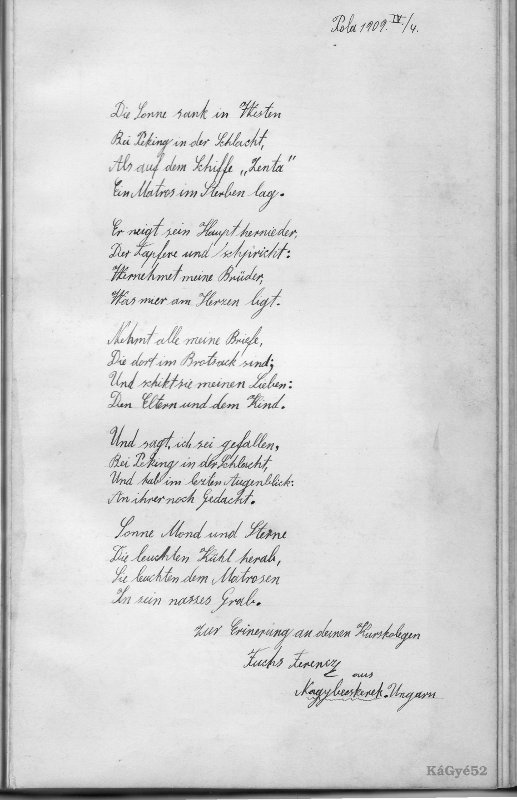 Pola 1909. IV./4.
Die Sonne sank in Westen
Bei Peking in der Schlacht,
Als auf dem Schiffe „Zenta"
Ein Matros im Sterben lag.
Er neigt sein Haupt hernieder,
Der Tapfere und schpricht:
Wernehmet meine Brüder,
Was mier am Herzen ligt.
Nehmt alle meine Briefe,
Die dort im Brotsack sind;
Und schikt sie meinen Lieben:
Den Eltern und dem Kind.
Und sagt, ich sei gefallen,
Bei Peking in der Schlacht,
Und hab im lezten Augenblick:
An ihrer noch Gedacht.
Sonne Mond und Sterne
Die leuchten Kühl herab,
Sie leuchten dem Matrosen
In sein nasses Grab.
zur Erinerung an deinen Kurskolegen
Fuchs Ferencz
aus
Nagybecskerek. Ungarn
KáGyé52